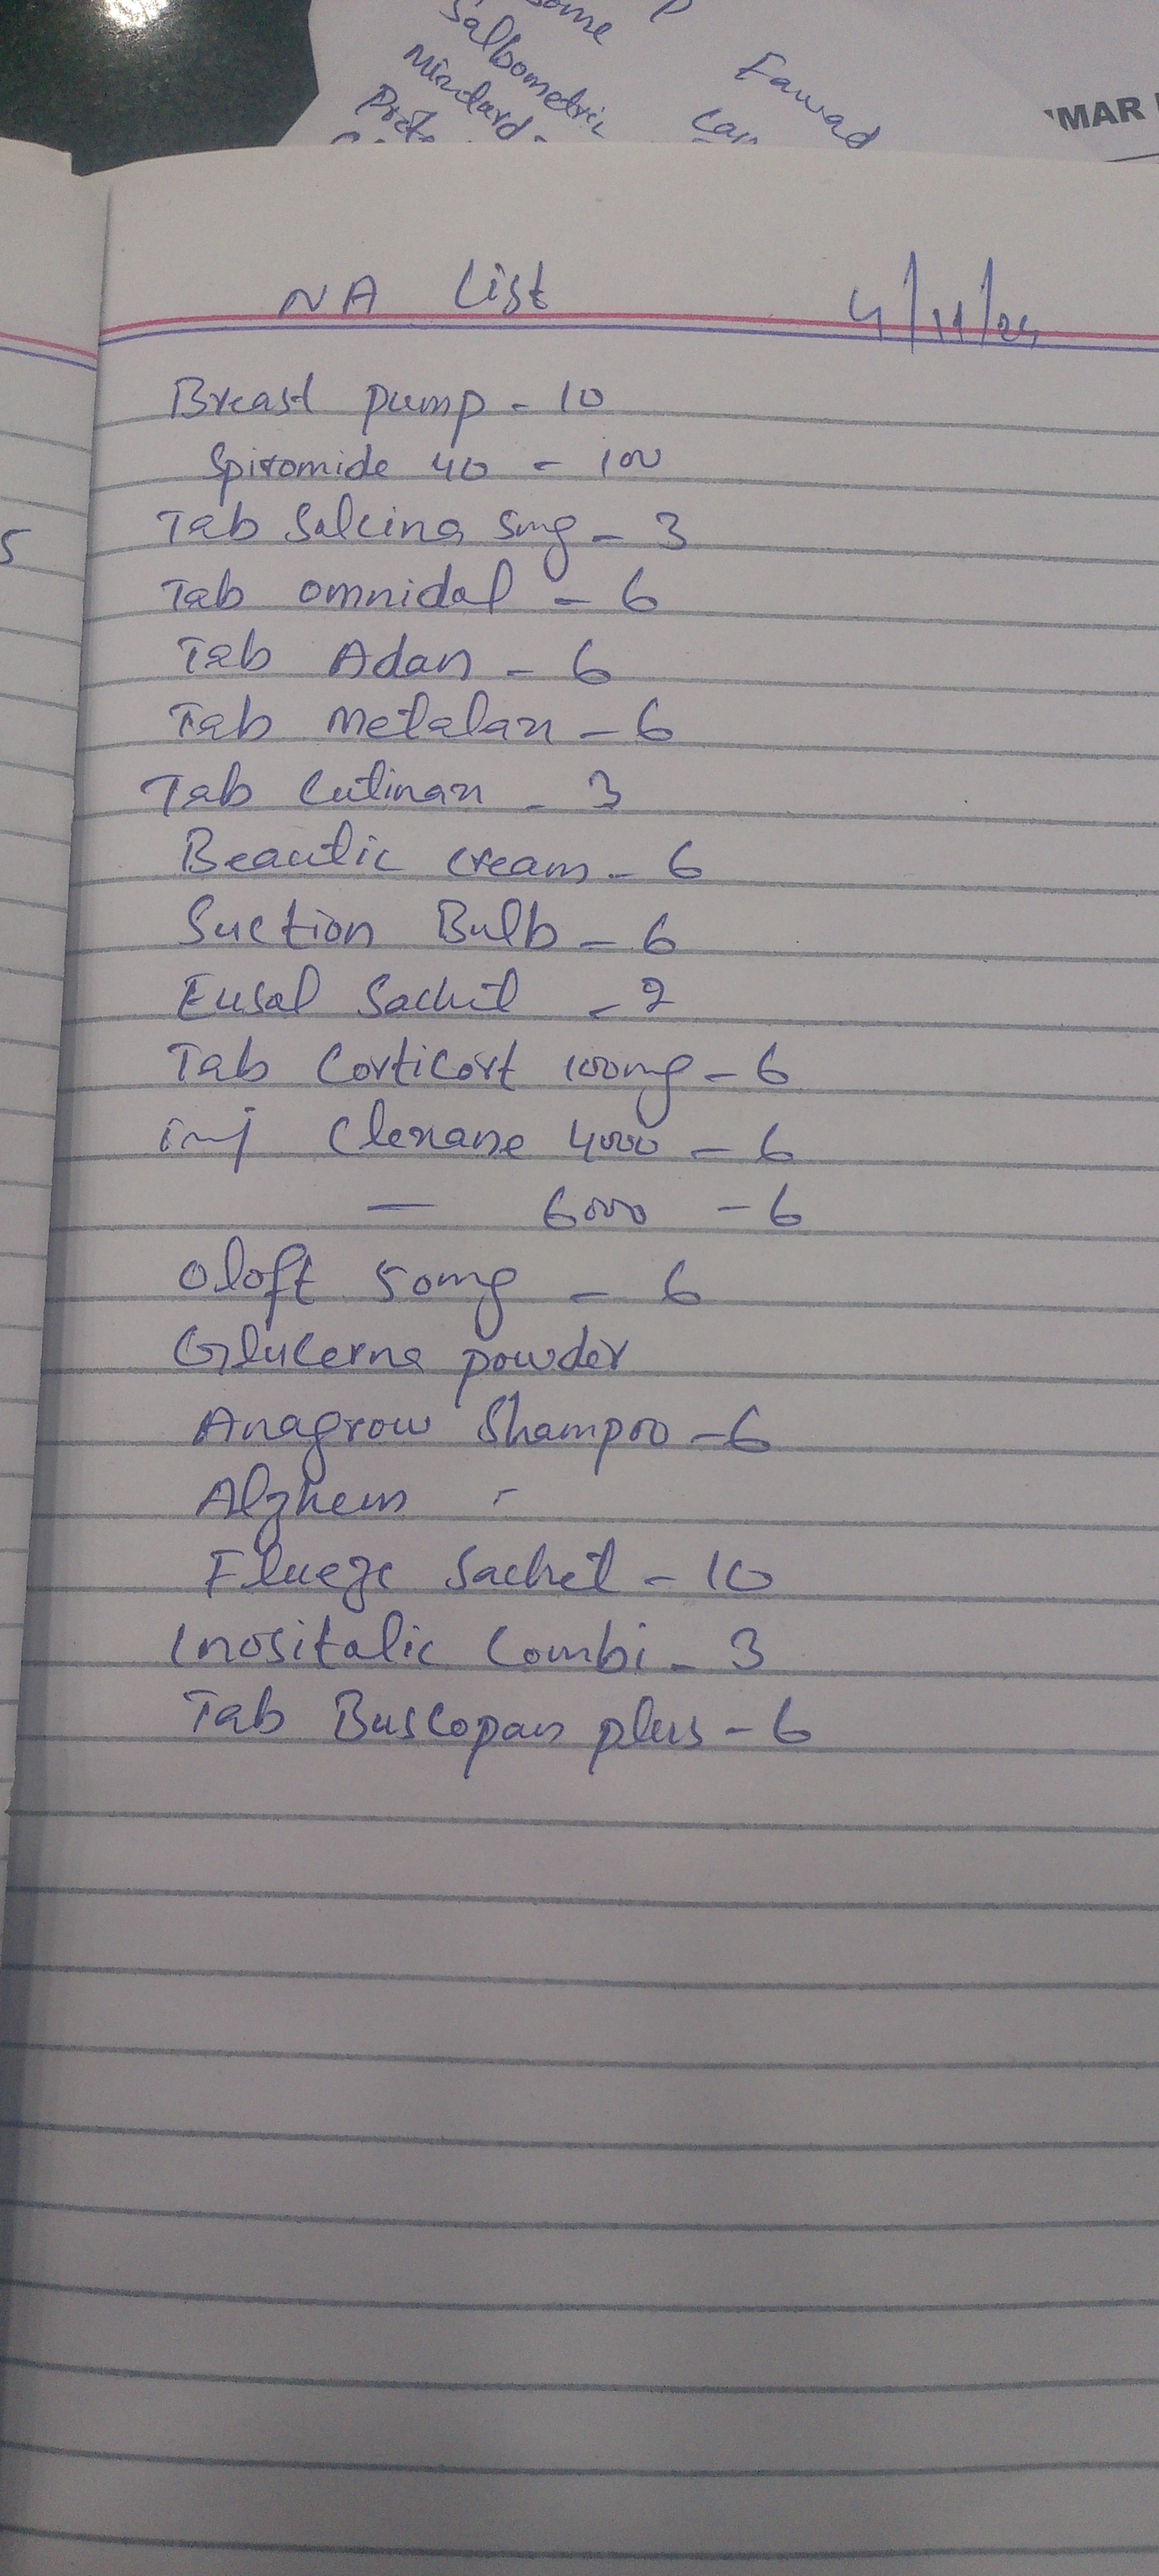 some
Salbometric
Mixtard -
Fawad
MAR
NA List 4/11/24
Breast pump - 10
Spiromide 40 - 100
5
Tab Salcina 5mg - 3
Tab omnidol - 6
Tab Adan - 6
Tab Metalan - 6
Tab Cutinan - 3
Beautic cream - 6
Suction Bulb - 6
Eusol Sachit - 2
Tab Corticort 100mg - 6
inj Clexane 4000 - 6
— 6000 - 6
Oloft 50mg - 6
Glucerna powder
Anagrow Shampoo - 6
-
Flueze Sachet - 10
Inositalic Combi - 3
Tab Buscopan plus - 6